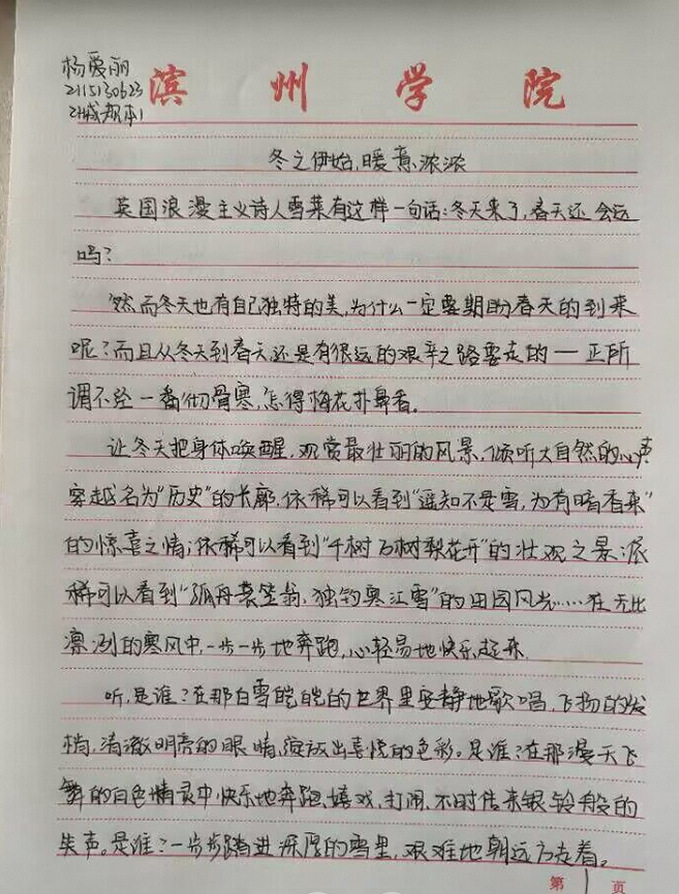 杨爱丽
2115130623
21城규本1
滨州学院
冬之伊始,暖意浓浓
英国浪漫主义诗人雪莱有这样一句话:冬天来了,春天还会远
吗?
然而冬天也有自己独特的美,为什么一定要期盼春天的到来
呢?而且从冬天到春天,还是有很远的艰辛之路要走的一正所
谓不经一番彻骨寒,怎得梅花扑鼻香。
让冬天把身体唤醒,观赏最壮丽的风景,倾听大自然的心声
穿越名为"历史"的长廊,依稀可以看到"遥知不是雪,为有暗香来"
的惊喜之情;依稀可以看到"千树万树梨花开"的壮观之景;依
稀可以看到"孤舟蓑笠翁,独钓寒江雪"的田园风光……在无比
凛冽的寒风中,一步一步地奔跑,心轻易地快乐起来.
听,是谁?在那白雪皑皑的世界里安静地歌唱,飞扬的发
梢,清澈明亮的眼睛,绽放出喜悦的色彩。是谁?在那漫天飞
舞的白色精灵中快乐地奔跑、嬉戏、打闹,不时传来银铃般的
笑声。是谁?一步步踏进深厚的雪里,艰难地朝远方走着。
第1页